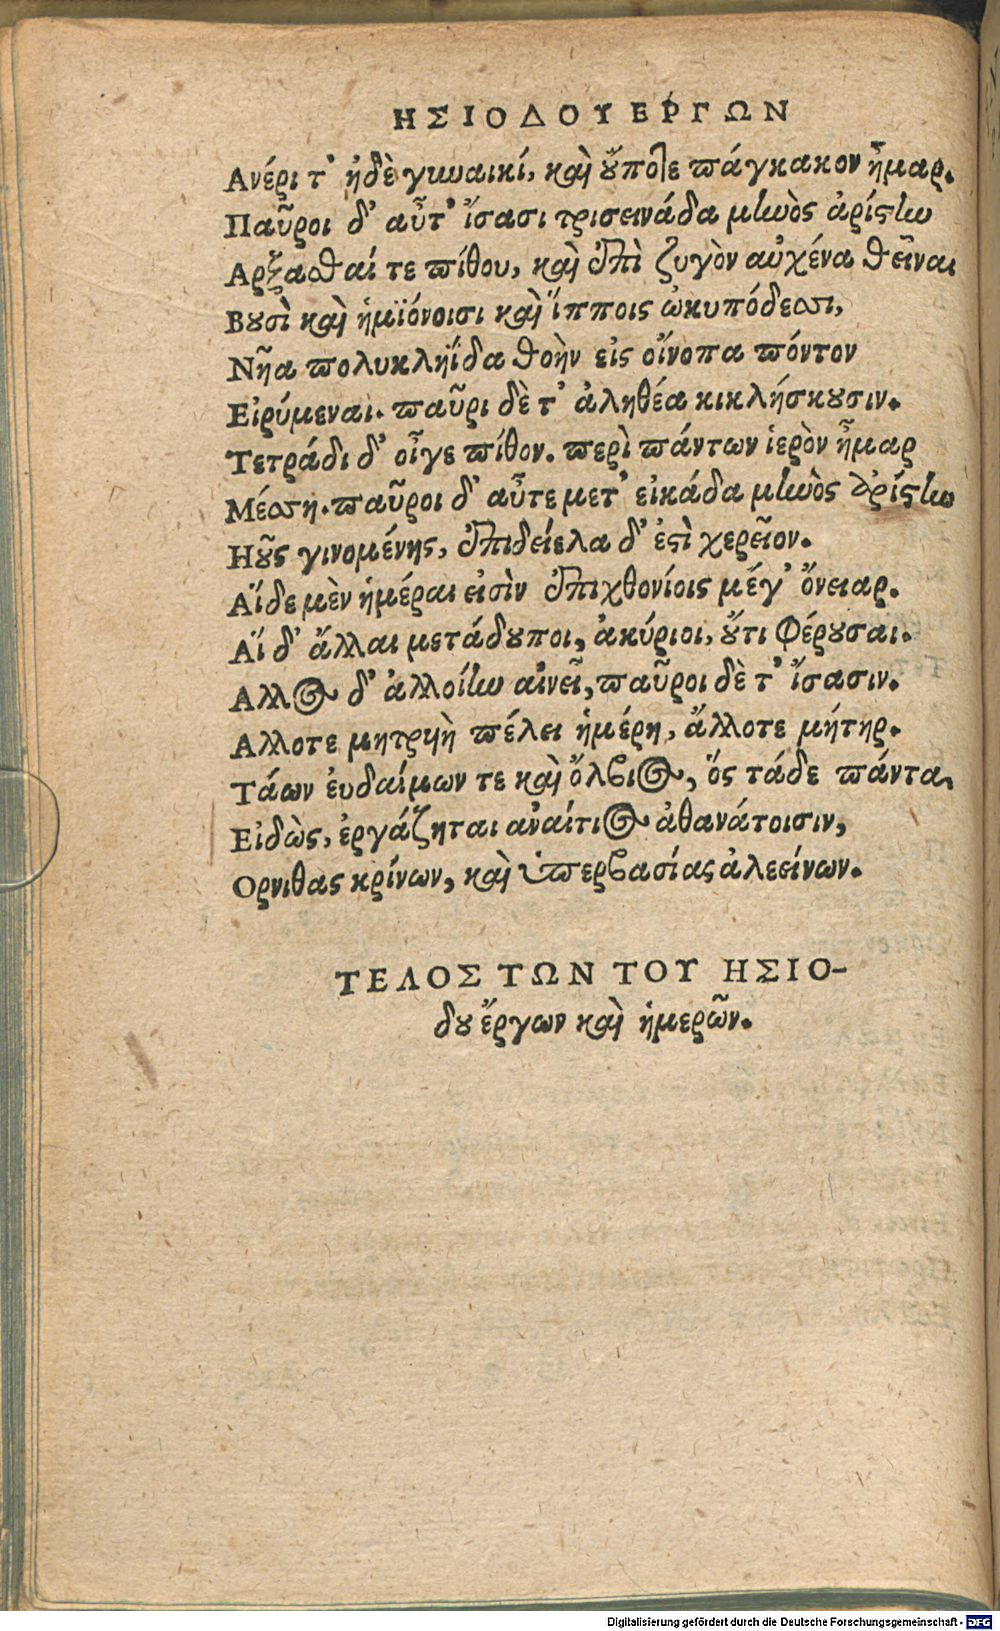 ΗΣΙΟΔΟΥ ΕΡΓΩΝ
Ανέρι τ' ἠδὲ γυναικί, καὶ οὔποτε πάγκακον ἦμαρ.
Παῦροι δ' αὖτ' ἴσασι τρισεινάδα μηνὸς ἀρίστην
Αρξασθαί τε πίθου, καὶ ἐπὶ ζυγὸν αὐχένα θεῖναι
Βουσὶ καὶ ἡμϊόνοισι καὶ ἵπποις ὠκυπόδεσσι,
Νῆα πολυκληΐδα θοὴν εἰς οἴνοπα πόντον
Εἰρύμεναι. παῦρι δὲ τ' ἀληθέα κικλήσκουσιν.
Τετράδι δ' οἶγε πίθον. περὶ πάντων ἱερὸν ἦμαρ
Μέσση. παῦροι δ' αὖτε μετ' εἰκάδα μηνὸς ἀρίστην
Ηοῦς γινομένης, ἐπιδείελα δ' ἐστὶ χερεῖον.
Αἵδε μὲν ἡμέραι εἰσὶν ἐπιχθονίοις μέγ' ὄνειαρ.
Αἵ δ' ἄλλαι μετάδουποι, ἀκύριοι, οὔτι φέρουσαι.
Αλλος δ' ἀλλοίην αἰνεῖ, παῦροι δὲ τ' ἴσασιν.
Αλλοτε μητρυὴ πέλει ἡμέρη, ἄλλοτε μήτηρ.
Τάων ἐυδαίμων τε καὶ ὄλβιος, ὅς τάδε πάντα,
Εἰδὼς, ἐργάζηται ἀναίτιος ἀθανάτοισιν,
Ορνιθας κρίνων, καὶ ὑπερβασίας ἀλεείνων.
ΤΕΛΟΣ ΤΩΝ ΤΟΥ ΗΣΙΟ-
δου ἔργων καὶ ἡμερῶν.
Digitalisierung gefördert durch die Deutsche Forschungsgemeinschaft - DFG